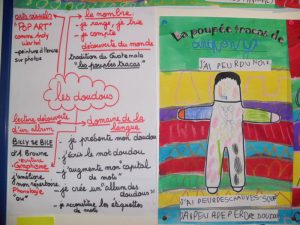 arts visuels
"POP ART"
comme Andy
Warhol
-peinture à l'encre
sur photos
le nombre
- je range, je trie
- je compte
découverte du monde
tradition du Guatemala
"les poupées tracas"
les doudous
lecture découverte
d'un album
BILLY SE BILE
d'A Browne
écriture
j'améliore
mon répertoire
Phonologie
"ou"
domaine de la
langue
- je présente mon doudou
- j'écris le mot doudou
- j'augmente mon capital
de mots"
- je crée un "album des
doudous"
- je reconstitue les étiquettes
de mots
La poupée tracas de
J'AI PEUR DU NOIR
J'AI PEUR DES CHAUVES SOURIS
J'AI PEUR DE PERDRE DOUDOU